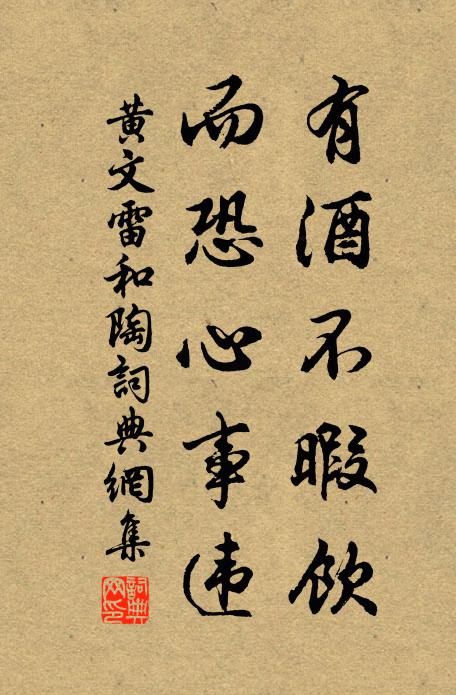 有酒不暇飲
而恐心事违
黃文雷和陶詞典網集
詞典网印